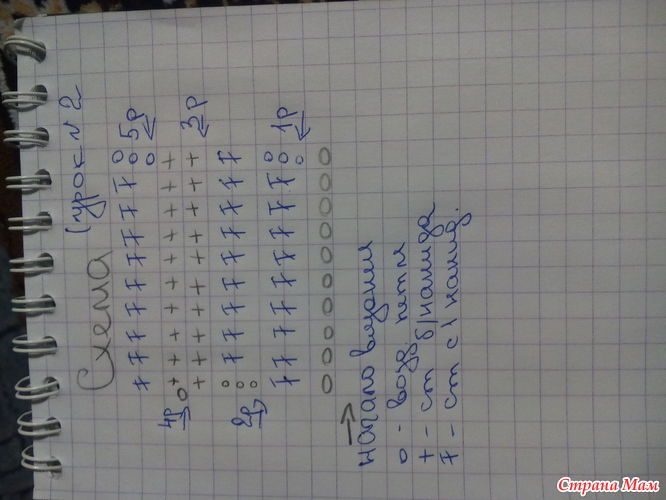 Схема (урок N 2
5р
4р
3р
2р
1р
начало вязания
о - возд петля
+ - ст б/накида
Ŧ - ст с 1 накид.
Страна Мам